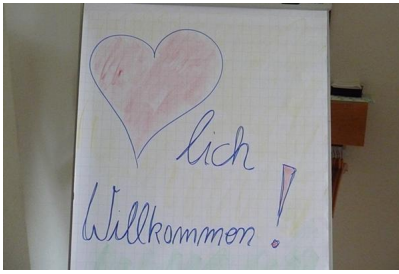 lich
Willkommen!